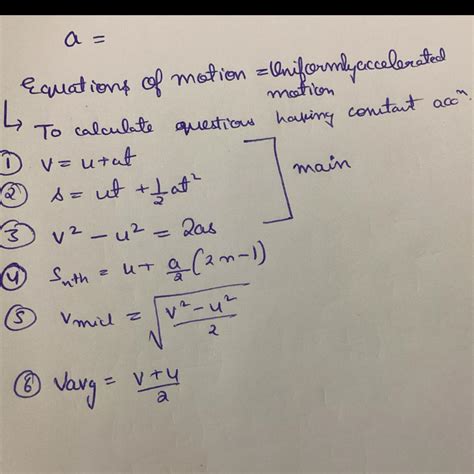 a =
Equations of motion = Uniformly accelerated
motion
↳ To calculate questions having constant accⁿ.
① v = u + at
② s = ut + ½at²
main
③ v² - u² = 2as
④ Snth = u + a/2 (2n-1)
⑤ Vmid = √(v² - u²/2)
⑥ Vavg = v + u/2